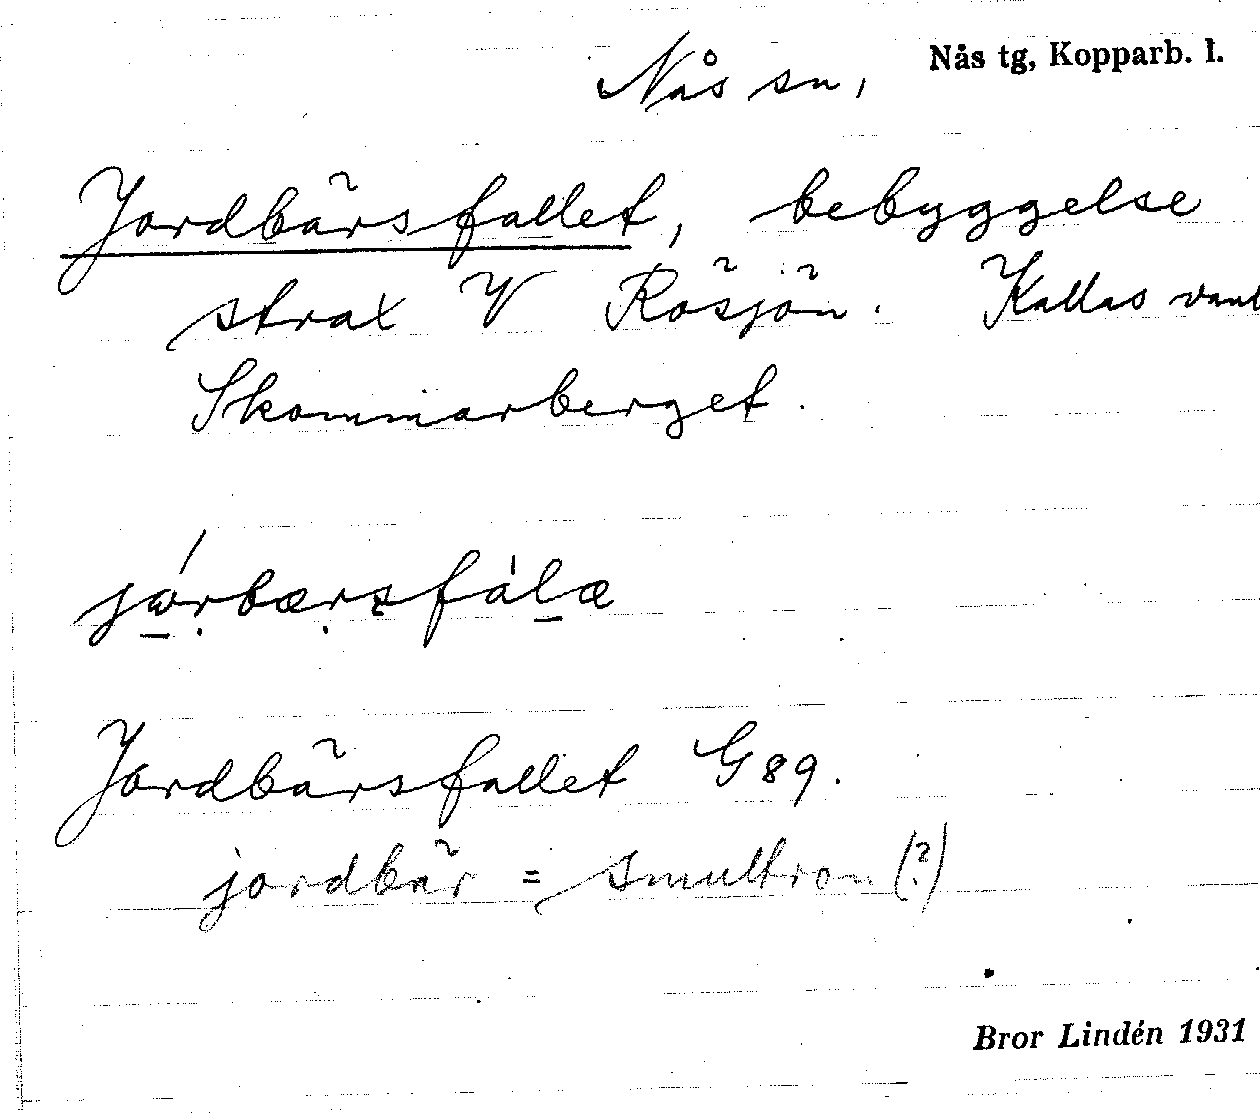 Nås sn, Nås tg, Kopparb. l.
Jordbärsfallet, bebyggelse
strax V Rösjön. Kallas vanl
Skommarberget.
Jordbärsfallet G 89.
jordbär = smultron (?)
Bror Lindén 1931